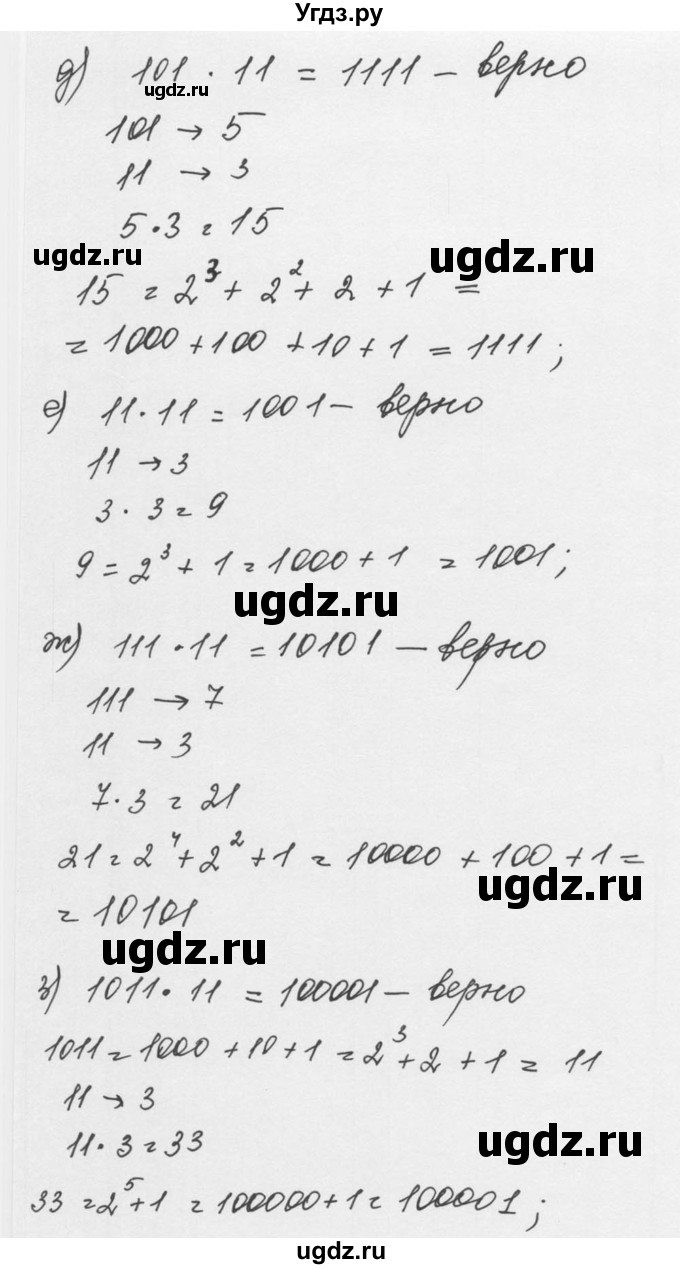 Угдз.ру
д) 101 · 11 = 1111 – верно
ugdz.ru
101 → 5
11 → 3
5·3 = 15
ugdz.ru
ugdz.ru
15 = 2³ + 2² + 2 + 1 =
= 1000 + 100 + 10 + 1 = 1111;
е) 11·11 = 1001 – верно
11 → 3
3·3 = 9
9 = 2³ + 1 = 1000 + 1 = 1001;
ugdz.ru
ж) 111·11 = 10101 – верно
111 → 7
11 → 3
7·3 = 21
21 = 2⁴ + 2² + 1 = 10000 + 100 + 1 =
ugdz.ru
= 10101
ugdz.ru
з) 1011·11 = 100001 – верно
1011 = 1000 + 10 + 1 = 2³ + 2 + 1 = 11
11 → 3
11·3 = 33
ugdz.ru
33 = 2⁵ + 1 = 100000 + 1 = 100001;
ugdz.ru